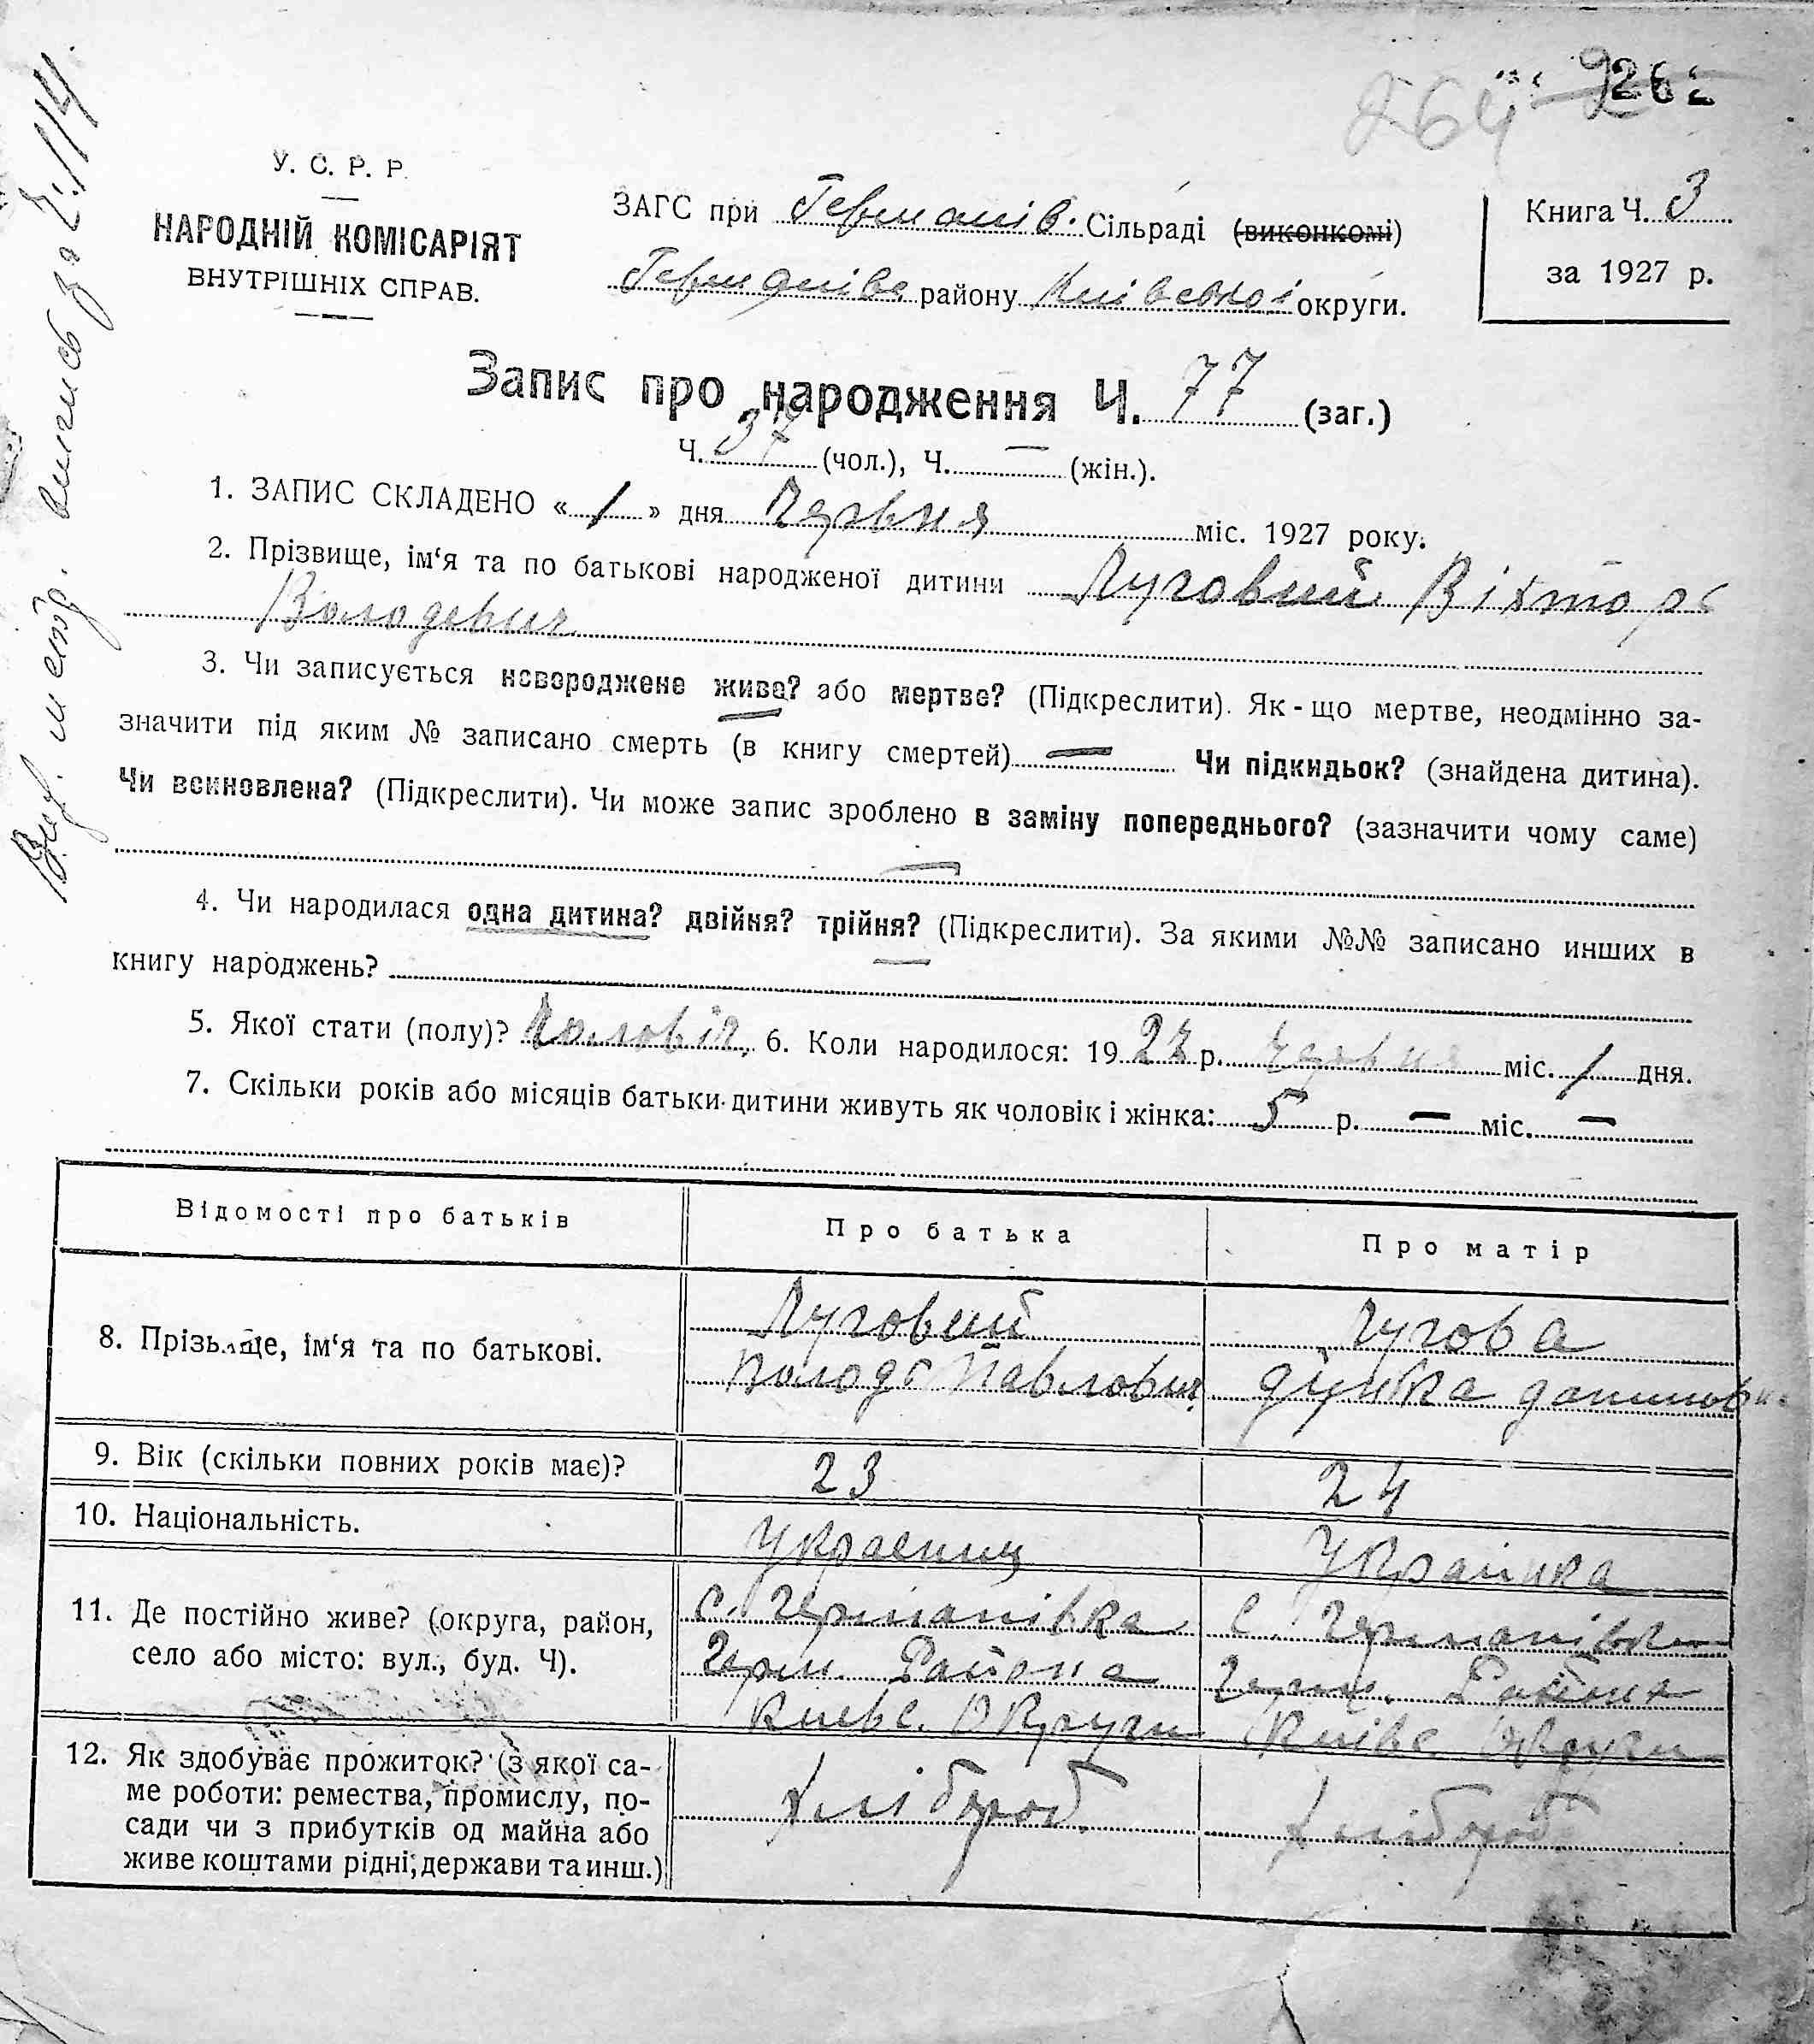 262
264
У. С. Р. Р.
НАРОДНІЙ КОМІСАРІЯТ
ВНУТРІШНІХ СПРАВ.
ЗАГС при Германів. Сільраді (виконкомі)
Германівс району Київської округи.
Книга Ч. 3
за 1927 р.
Запис про народження Ч. 77 (заг.)
Ч. 37 (чол.), Ч. — (жін.).
1. ЗАПИС СКЛАДЕНО «1» дня Червня міс. 1927 року.
2. Прізвище, ім‘я та по батькові народженої дитини Луговий Віктор
Володевич
3. Чи записується новороджене живе? або мертве? (Підкреслити). Як-що мертве, неодмінно за-
значити під яким № записано смерть (в книгу смертей) — Чи підкидьок? (знайдена дитина).
Чи всиновлена? (Підкреслити). Чи може запис зроблено в заміну попереднього? (зазначити чому саме)
—
4. Чи народилася одна дитина? двійня? трійня? (Підкреслити). За якими №№ записано инших в
книгу народжень? —
5. Якої стати (полу)? Чоловіч. 6. Коли народилося: 1927 р. Червня міс. 1 дня.
7. Скільки років або місяців батьки дитини живуть як чоловік і жінка: 5 р. — міс. —
Відомості про батьків
Про батька
Про матір
8. Прізвище, ім‘я та по батькові.
Луговий
Володь Павлович
Лугова
9. Вік (скільки повних років має)?
23
24
10. Національність.
Украениц
Украінка
11. Де постійно живе? (округа, район,
село або місто: вул., буд. Ч).
с. Германівка
Герм. Района
Киевс. Округи
с. Германівка
Герм. Района
Київс. Округи
12. Як здобуває прожиток? (з якої са-
ме роботи: ремества, промислу, по-
сади чи з прибутків од майна або
живе коштами рідні, держави та инш.)
Хлібороб.
Хлібороб
Вид. метр. випись за Ч. 114.